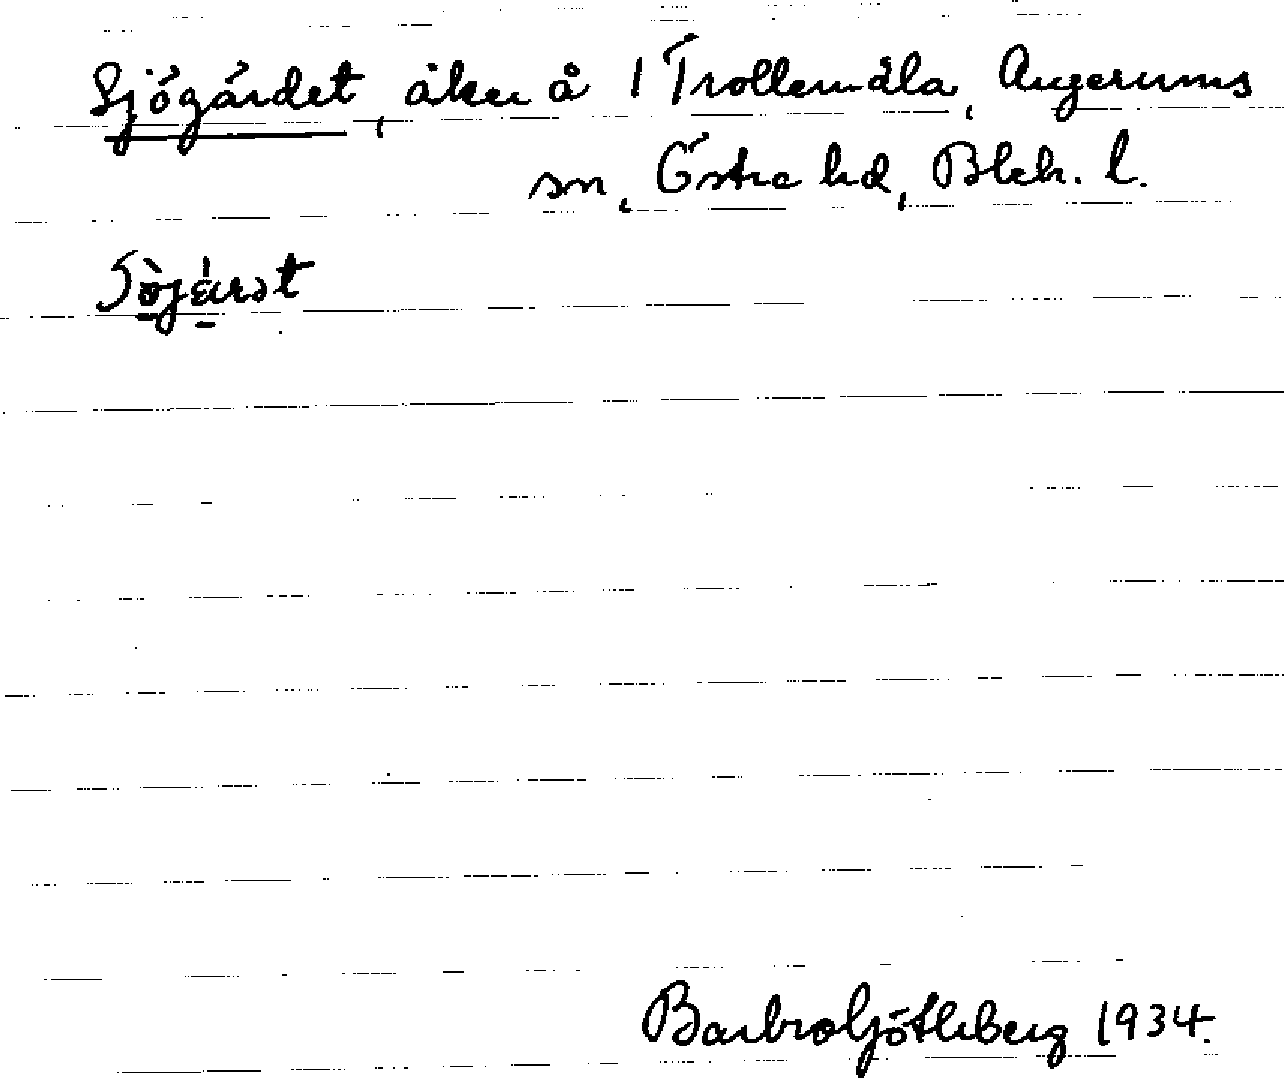 Sjögärdet, åker å 1 Trollemåla, Augerums
sn, Östra hd, Blek. l.
Barbro Götlberg 1934.